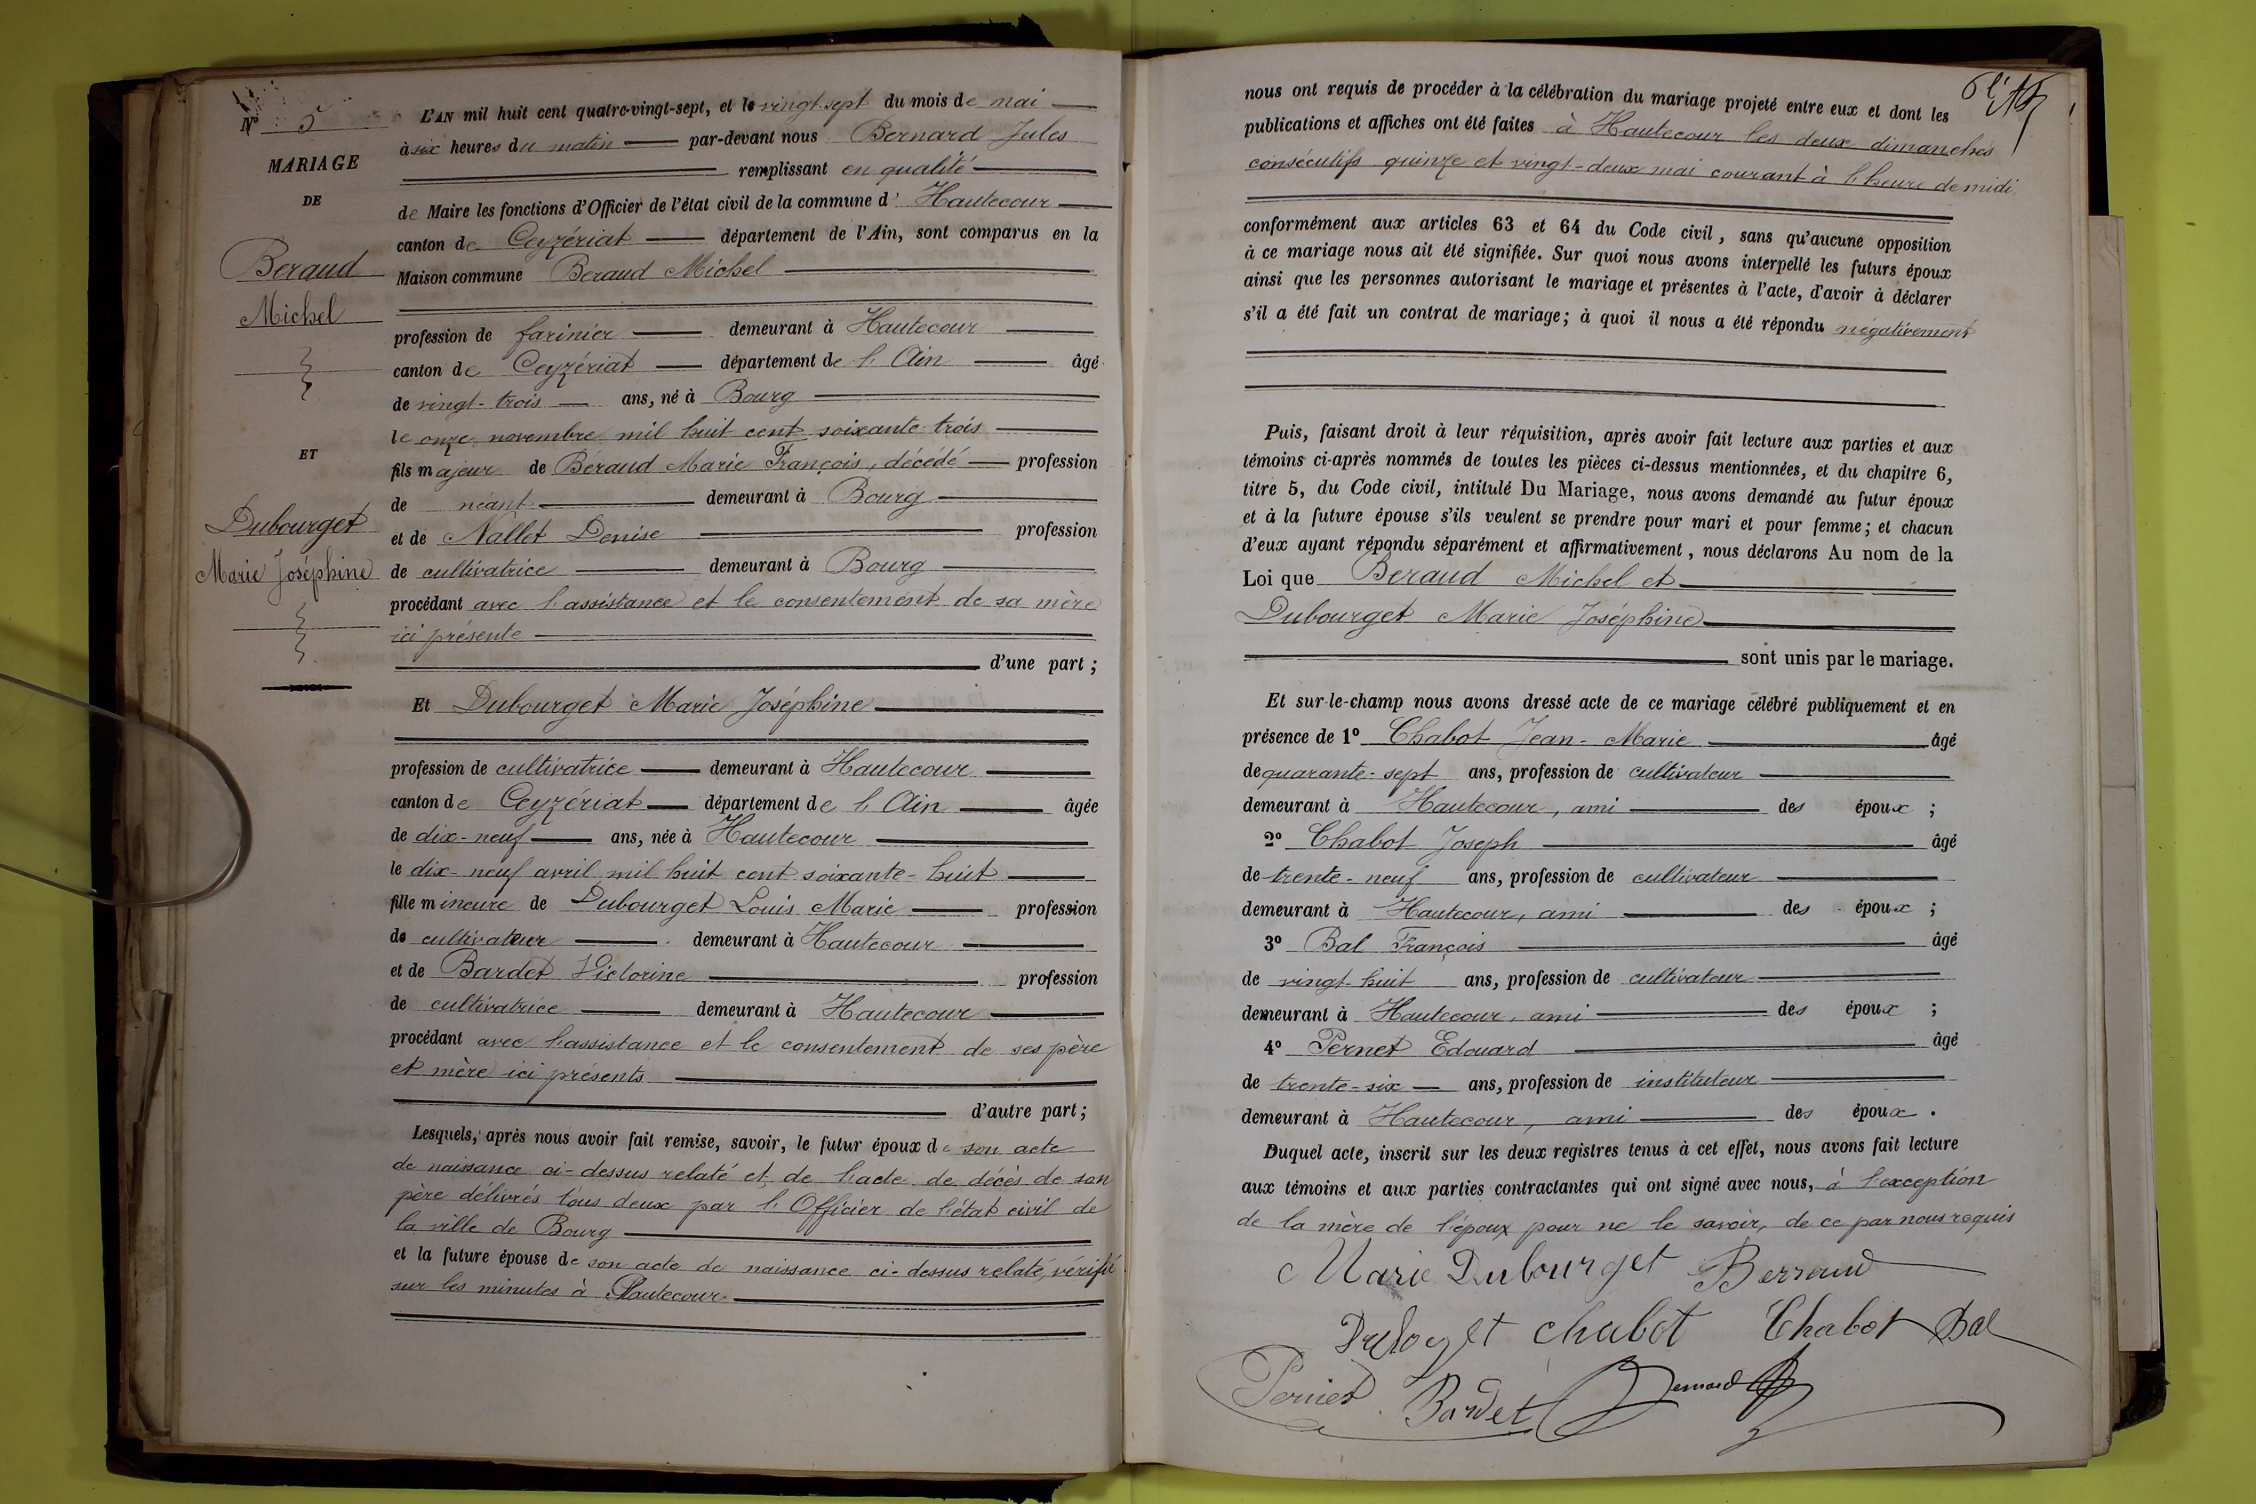 N° 5
MARIAGE
DE
Beraud
Michel
ET
Dubourget
Marie Joséphine
L'AN mil huit cent quatre-vingt-sept, et le vingt-sept du mois de mai
à six heures du matin par-devant nous Bernard Jules
remplissant en qualité
de Maire les fonctions d'Officier de l'état civil de la commune d' Hautecour
canton de Ceyzériat département de l'Ain, sont comparus en la
Maison commune Beraud Michel
profession de farinier demeurant à Hautecour
canton de Ceyzériat département de l'Ain âgé
de vingt-trois ans, né à Bourg
le onze novembre mil huit cent soixante trois
fils majeur de Béraud Marie François, décédé profession
de néant demeurant à Bourg
et de Nallet Denise profession
de cultivatrice demeurant à Bourg
procédant avec l'assistance et le consentement de sa mère
ici présente
d'une part ;
Et Dubourget Marie Joséphine
profession de cultivatrice demeurant à Hautecour
canton de Ceyzériat département de l'Ain âgée
de dix-neuf ans, née à Hautecour
le dix-neuf avril mil huit cent soixante-huit
fille mineure de Dubourget Louis Marie profession
de cultivateur demeurant à Hautecour
et de Bardet Victorine profession
de cultivatrice demeurant à Hautecour
procédant avec l'assistance et le consentement de ses père
et mère ici présents
d'autre part ;
Lesquels, après nous avoir fait remise, savoir, le futur époux de son acte
de naissance ci-dessus relaté et de l'acte de décès de son
père délivrés tous deux par l'Officier de l'état civil de
la ville de Bourg
et la future épouse de son acte de naissance ci-dessus relaté, vérifié
sur les minutes à Hautecour
nous ont requis de procéder à la célébration du mariage projeté entre eux et dont les
publications et affiches ont été faites à Hautecour les deux dimanches
consécutifs quinze et vingt-deux mai courant à l'heure de midi
conformément aux articles 63 et 64 du Code civil, sans qu'aucune opposition
à ce mariage nous ait été signifiée. Sur quoi nous avons interpellé les futurs époux
ainsi que les personnes autorisant le mariage et présentes à l'acte, d'avoir à déclarer
s'il a été fait un contrat de mariage ; à quoi il nous a été répondu négativement
Puis, faisant droit à leur réquisition, après avoir fait lecture aux parties et aux
témoins ci-après nommés de toutes les pièces ci-dessus mentionnées, et du chapitre 6,
titre 5, du Code civil, intitulé Du Mariage, nous avons demandé au futur époux
et à la future épouse s'ils veulent se prendre pour mari et pour femme ; et chacun
d'eux ayant répondu séparément et affirmativement, nous déclarons Au nom de la
Loi que Beraud Michel et
Dubourget Marie Joséphine
sont unis par le mariage.
Et sur-le-champ nous avons dressé acte de ce mariage célébré publiquement et en
présence de 1° Chabot Jean-Marie âgé
de quarante-sept ans, profession de cultivateur
demeurant à Hautecour, ami des époux ;
2° Chabot Joseph âgé
de trente-neuf ans, profession de cultivateur
demeurant à Hautecour, ami des époux ;
3° Bal François âgé
de vingt-huit ans, profession de cultivateur
demeurant à Hautecour, ami des époux ;
4° Pernet Edouard âgé
de trente-six ans, profession de instituteur
demeurant à Hautecour, ami des époux .
Duquel acte, inscrit sur les deux registres tenus à cet effet, nous avons fait lecture
aux témoins et aux parties contractantes qui ont signé avec nous, à l'exception
de la mère de l'époux pour ne le savoir, de ce par nous requis
Marie Dubourget Berraud
chabot Chabot Bal
Pernet Bardet Bernard